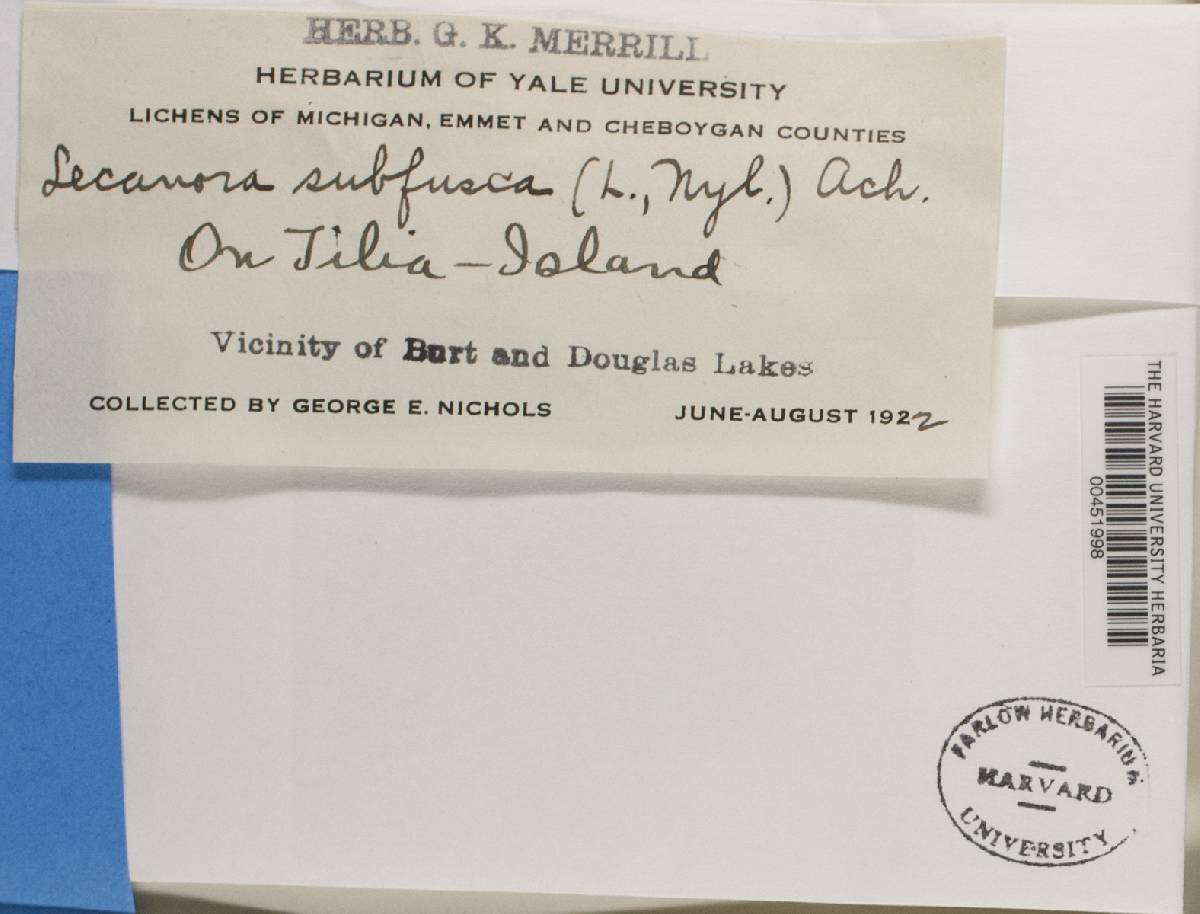 HERB. G. K. MERRILL
HERBARIUM OF YALE UNIVERSITY
LICHENS OF MICHIGAN, EMMET AND CHEBOYGAN COUNTIES
Lecanora subfusca (L., Nyl.) Ach.
On Tilia – Island
Vicinity of Burt and Douglas Lakes
COLLECTED BY GEORGE E. NICHOLS JUNE-AUGUST 1922
THE HARVARD UNIVERSITY HERBARIA
00451998
FARLOW HERBARIUM
HARVARD
UNIVERSITY